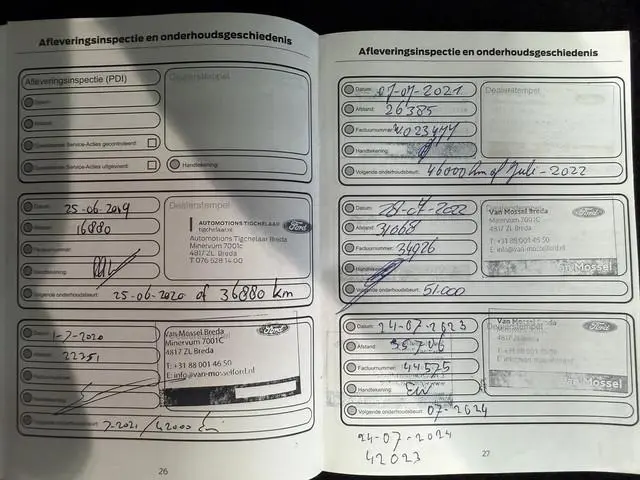 Afleveringsinspectie en onderhoudsgeschiedenis
Afleveringsinspectie (PDI)
Dealerstempel
Datum:
Afstand:
Openstaande Service-Acties gecontroleerd:
Openstaande Service-Acties uitgevoerd:
Handtekening:
Datum: 25-06-2019
Afstand: 16880
Factuurnummer:
Handtekening:
Volgende onderhoudsbeurt: 25-06-2020 of 36880 km
Dealerstempel
AUTOMOTIONS TIGCHELAAR
tigchelaar.nl
Ford
Automotions Tigchelaar Breda
Minervum 7001c
4817 ZL Breda
T 076 528 14 00
Datum: 1-7-2020
Afstand: 22351
Volgende onderhoudsbeurt: 7-2021 / 42000 km
Van Mossel Breda
Ford
Minervum 7001C
4817 ZL Breda
T: +31 88 001 46 50
E: info@van-mosselford.nl
26
Afleveringsinspectie en onderhoudsgeschiedenis
Datum: 07-07-2021
Afstand: 26385
Factuurnummer:
Handtekening:
Volgende onderhoudsbeurt: 46000 km of Juli - 2022
Dealerstempel
Datum: 28-07-2022
Afstand: 31068
Factuurnummer: 34926
Handtekening:
Volgende onderhoudsbeurt: 51.000
Van Mossel Breda
Ford
Minervum 7001C
4817 ZL Breda
T: +31 88 001 46 50
E: info@van-mosselford.nl
van Mossel
Datum: 24-07-2023
Afstand: 35706
Factuurnummer: 44525
Handtekening:
Volgende onderhoudsbeurt: 07-2024
Van Mossel Breda
Ford
4817 ZL Breda
T: +31 88 001 46 50
Mossel
24-07-2024
42023
27